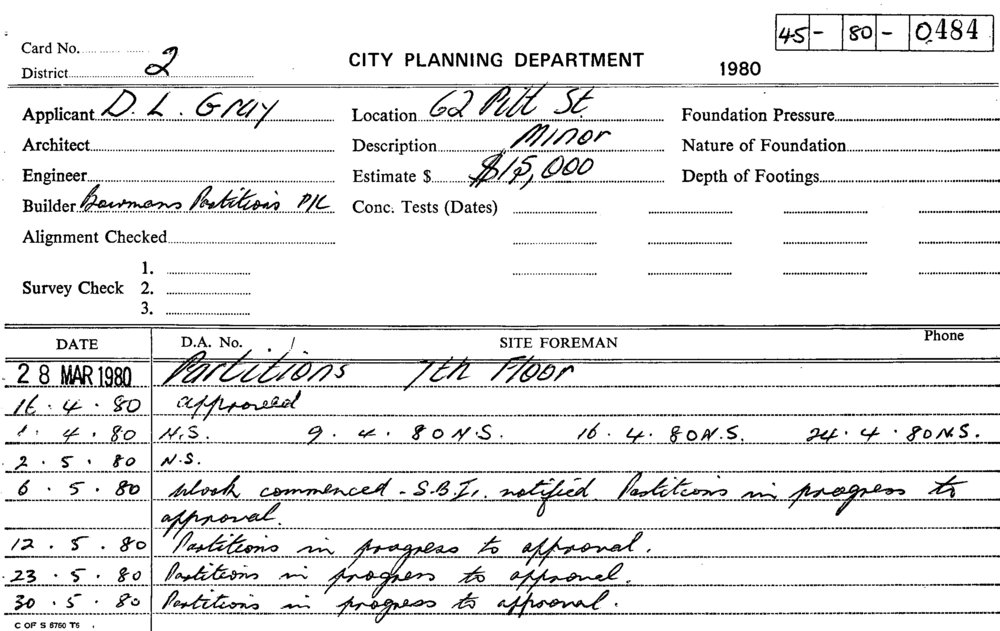 45 - 80 - 0484
Card No.
District 2
CITY PLANNING DEPARTMENT
1980
Applicant D. L. Gray
Location 62 Pitt St.
Foundation Pressure
Architect
Description Minor
Nature of Foundation
Engineer
Estimate $ $15,000
Depth of Footings
Builder Bowmans Partitions P/L
Conc. Tests (Dates)
Alignment Checked
1.
Survey Check 2.
3.
DATE D.A. No. SITE FOREMAN Phone
28 MAR 1980 Partitions 7th Floor
16.4.80 approved
1.4.80 N.S. 9.4.80 N.S. 16.4.80 N.S. 24.4.80 N.S.
2.5.80 N.S.
6.5.80 Work commenced - S.B.I. notified Partitions in progress to
approval.
12.5.80 Partitions in progress to approval.
23.5.80 Partitions in progress to approval.
30.5.80 Partitions in progress to approval.
C OF S 8760 T6